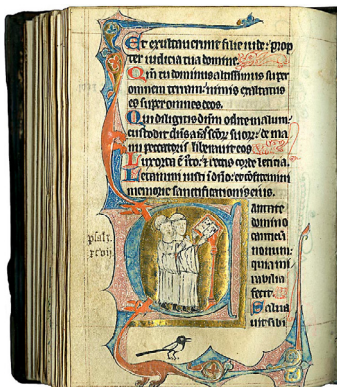 Et exultaverunt filie iude: prop
ter iudicia tua domine
Qm tu dominus altissimus super
omnem terram: nimis exaltatus
es super omnes deos.
Qui diligitis dnm odite malum:
custodit dns aias scor suor: de ma
nu peccatoris liberavit eos
Lux orta e iusto: & rectis corde leticia.
Letamini iusti i dno: et confitemini
memorie sanctificationis eius.
antate
domino
canticu
novum:
quia mi
rabilia
fecit.
Salva
vit sibi
psalm
xcvij